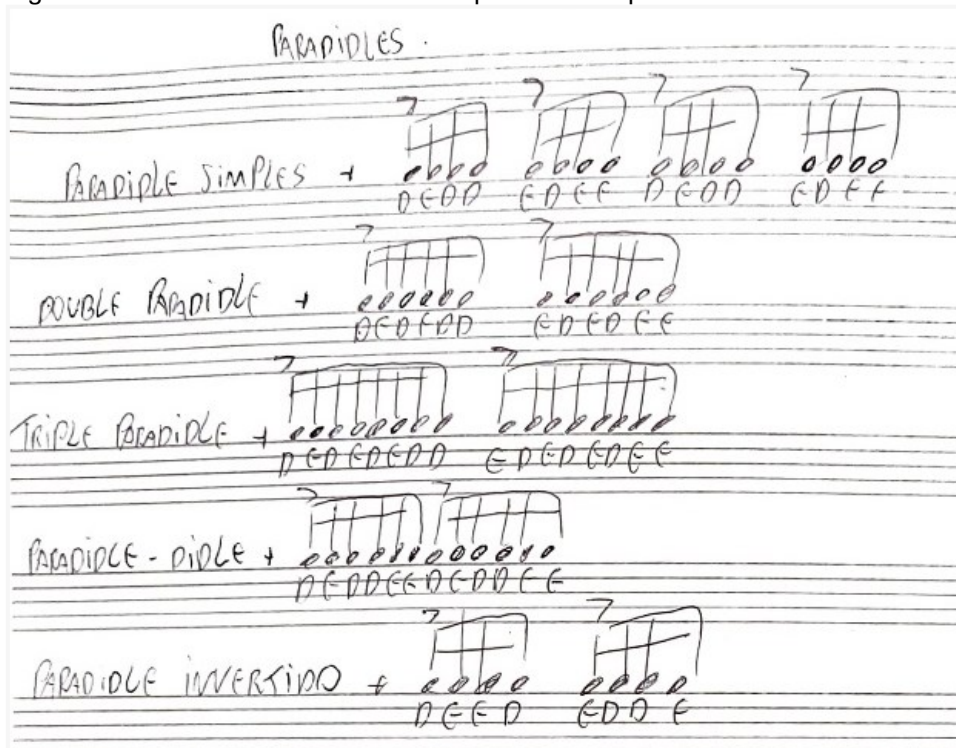 PARADIDLES.
PARADIDLE SIMPLES + D E D D E D E E D E D D E D E E
DOUBLE PARADIDLE + D E D E D D E D E D E E
TRIPLE PARADIDLE + D E D E D E D D E D E D E D E E
PARADIDLE - DIDLE + D E D D E E D E D D E E
PARADIDLE INVERTIDO + D E E D E D D E